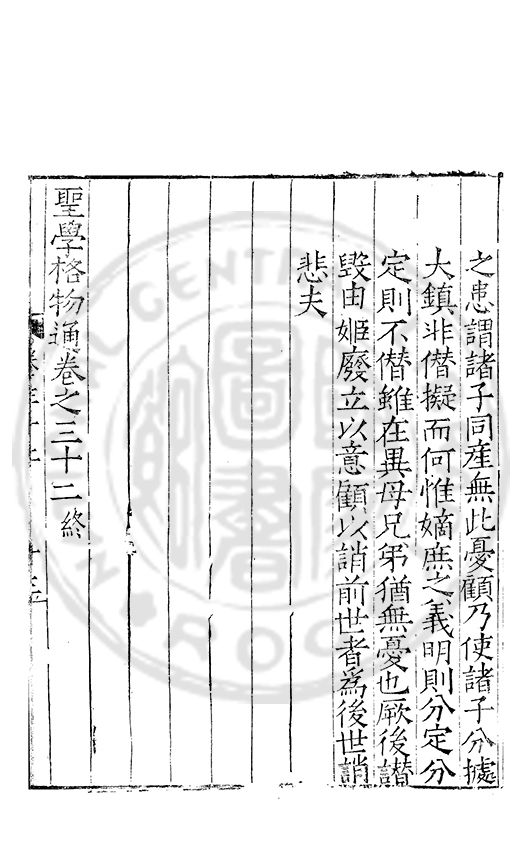 之患謂諸子同産無此憂顧乃使諸子分據
大鎮非僣擬而何惟嫡庶之義明則分定分
定則不僣雖在異母兄弟猶無憂也厥後譖
毀由姬廢立以意顧以誚前世者爲後世誚
悲夫
聖學格物通卷之三十二終